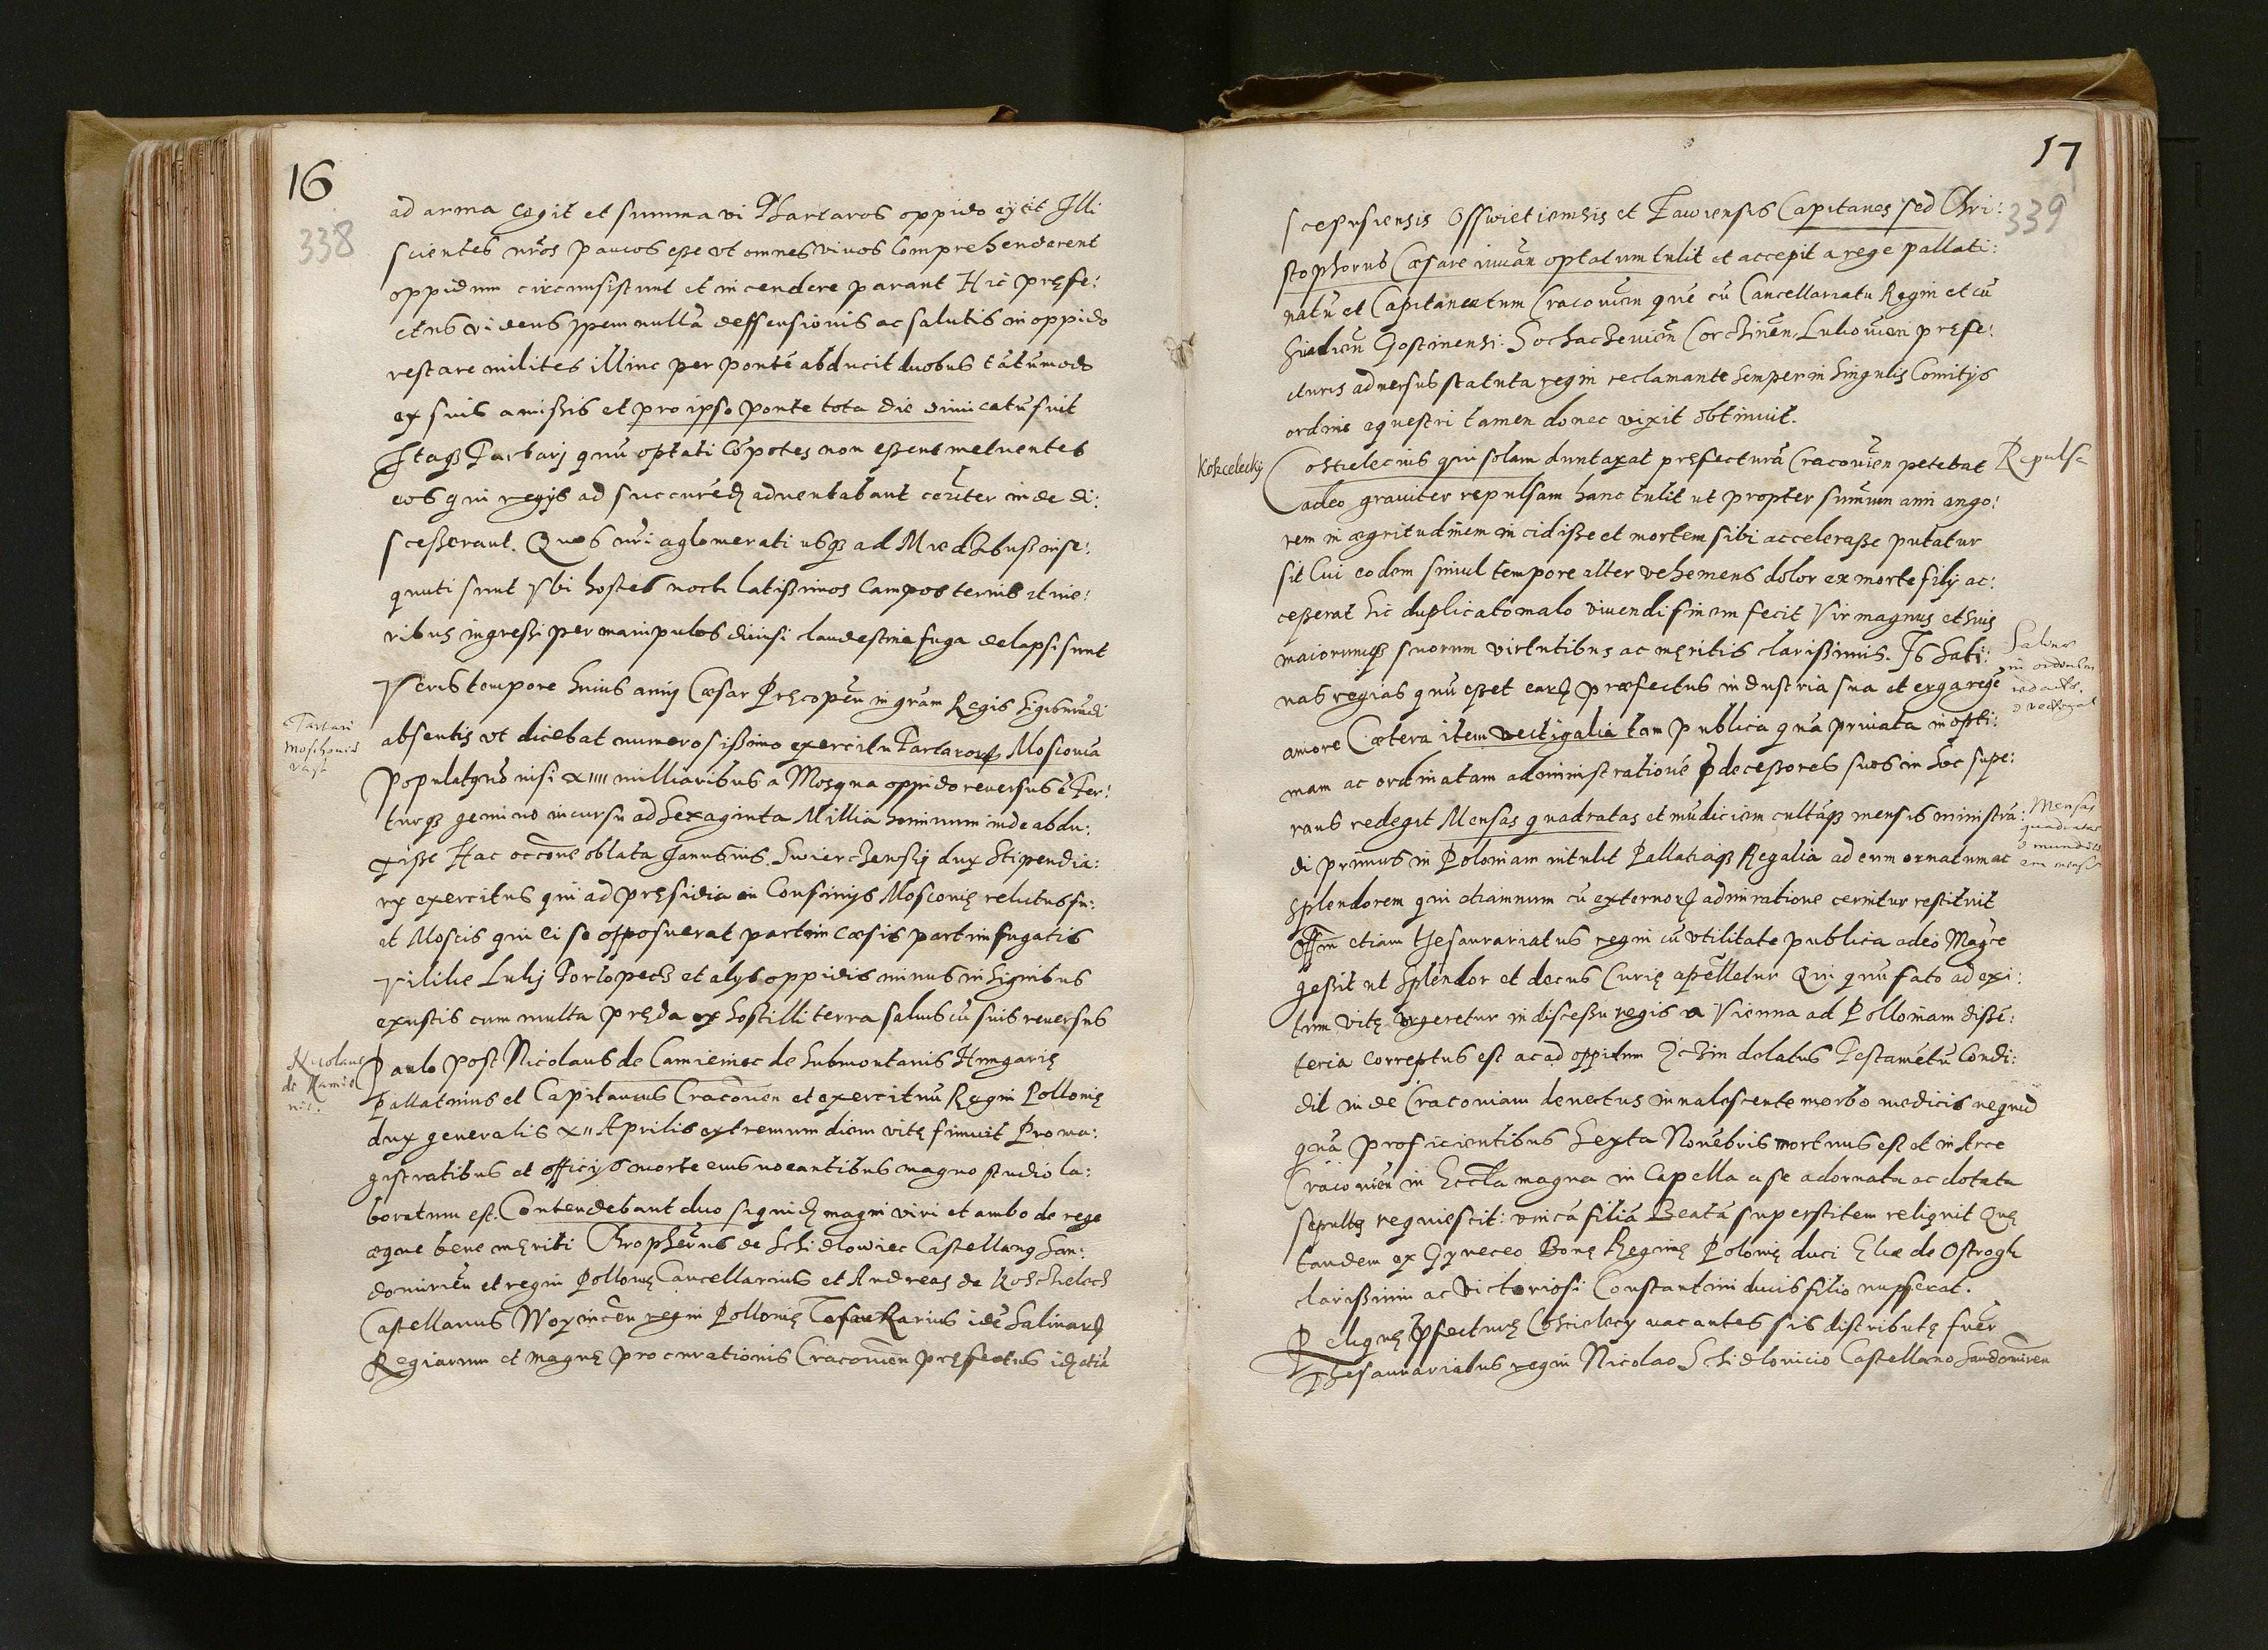 16
338
ad arma cogit et summa vi Thartaros oppido eycit Illi
scientes nr̃os paucos eße vt omnes vivos Comprehenderent
oppidum circumsistunt et incendere parant Hic pręfe:
ctus videns spem nullã deffensionis ac salutis in oppido
restare milites illinc per pontẽ abducit duobus tãtũmodo
ex suis amißis et pro ipso ponte tota die dimicatũ fuit
Itaqȝ Tartarj quũ optati cõpotes non eßent metuentes
eos qui regijs ad succurẽdũ adventabant cõiter inde di:
sceßerant. Quos nr̃i aglomerati usqȝ ad Miedzibuß inse:
quuti sunt Vbi hostes nocti latißimos Campos ternis itine:
ribus ingreßi per manipulos divisi clandestina fuga delapsi sunt
Veris tempore huius anni Cæsar Pręcopeñ in gr̃am Regis Sigismũdi
Tartari
Moschovia
vast
absentis vt dicebat numerosißimo exercitu Tartarorũ Moscoviã
Populatqȝ nisi xiiii milliaribus a Mosqua oppido reversus ẽ Fer:
turqȝ gemino incursu ad Sexaginta Millia hominum inde abdu:
xiße Hac occõne oblata Janussius Swierczewsky dux Stipendia:
rÿ exercitus qui ad pręsidia in Confinijs Moscovię relictus fu:
et Moscis qui ei se opposuerat partim cæsis partim fugatis
Vilikie Lukj Torlopecz et alys oppidis minus insignibus
exustis cum multa pręda ex hostilli terra salvus cũ suis reversus
Nicolaus
de Kamie
nic.
Paulo post Nicolaus de Camieniec de Submontanis Hungarię
Pallatinus et Capitaneus Cracovieñ et exercituũ Regni Pollonię
dux generalis xii Aprilis extremum diem vitę finiuit Pro ma:
gistratibus et officijs morte eius vacantibus magno studio la:
boratum est. Contendebant duo siquidẽ magni viri et ambo de rege
æque bene męriti Chrophẽrus de Schidlowiec Castellanꝯ San:
domirieñ et regni Pollonię Cancellarius et Andreas de Koschielecz
Castellanus Woyniceñ regni Pollonię Tesaurarius idẽ Salinarũ
Regiarum et magnę procurationis Cracovieñ pręfectus idẽ etiã
17
339
scepusiensis Osswietiemsis et Tawiensis Capitaneꝯ sed Chri:
stophorus Cæsare iuvãte optatum tulit et accepit a rege pallati:
natũ et Capitaneatum Cracovieñ quẽ cũ Cancellariatu Regni et cũ
Siradieñ Gostinensi: Sochaczevieñ Corczineñ, Lukovieñ pręfe:
cturis adversus statuta regni reclamante semper in singulis Comitijs
ordine equestri tamen donec vixit obtinuit.
Koscelecky
Costielecius qui solam duntaxat pręfecturã Cracovieñ petebat
Repulsa
adeo graviter repulsam hanc tulit ut propter summum ani ango:
rem in ægritudinem incidiße et mortem sibi acceleraße putatur
sit Cui eodem simul tempore alter vehemens dolor ex morte filÿ ac:
ceßerat hic duplicato malo vivendi finem fecit Vir magnus et suis
maiorumqȝ suorum virtutibus ac męritis clarißimis. Is Sali:
Salinæ
in ordinem
redactæ.
& vectigal
nas regias quũ eßet earũ præfectus industria sua et erga regẽ
amore Cætera item vectigalia tam publica quã privata in opti:
mam ac ordinatam administrationẽ p̃deceßores suos in hoc supe:
rans redegit Mensas quadratas et mũdiciem cultũqȝ mensis ministrã:
Mensas
quadratas
& mundici
em mensæ
di primus in Poloniam intulit Pallatiaqȝ Regalia ad eum ornatum ac
splendorem qui etiamnum cũ externorũ admiratione cernitur restituit
Offm̃ etiam thesaurariatus regni cũ vtilitate publica adeo Magce
geßit ut splendor et decus Curię apellẽtur Qui quũ fato ad exi:
tum vitę vrgeretur in discessu regis a Vienna ad Polloniam dißẽ:
teria correptus est ac ad oppidum Iczin delatus Testamẽtũ Condi:
dit inde Cracoviam devectus invalescente morbo medicis nequid
quã proficientibus Sexta Novẽbris mortuus est et in Arce
Cracovieñ in Eccl̃a magna in Capella a se adornata ac dotata
sepultꝯ requiescit: vnicã filiã Beatã superstitem reliquit Quę
tandem ex Gyneceo Bonę Reginę Polonię duci Elię de Ostrogk
clarißimi ac victoriosi Constantini ducis filio nupserat.
Reliquę p̃fecturę Coscielecÿ vacantes sic distributę fuer̃
Thesaurariatus regni Nicolao Schidlovicio Castellano Sandomireñ